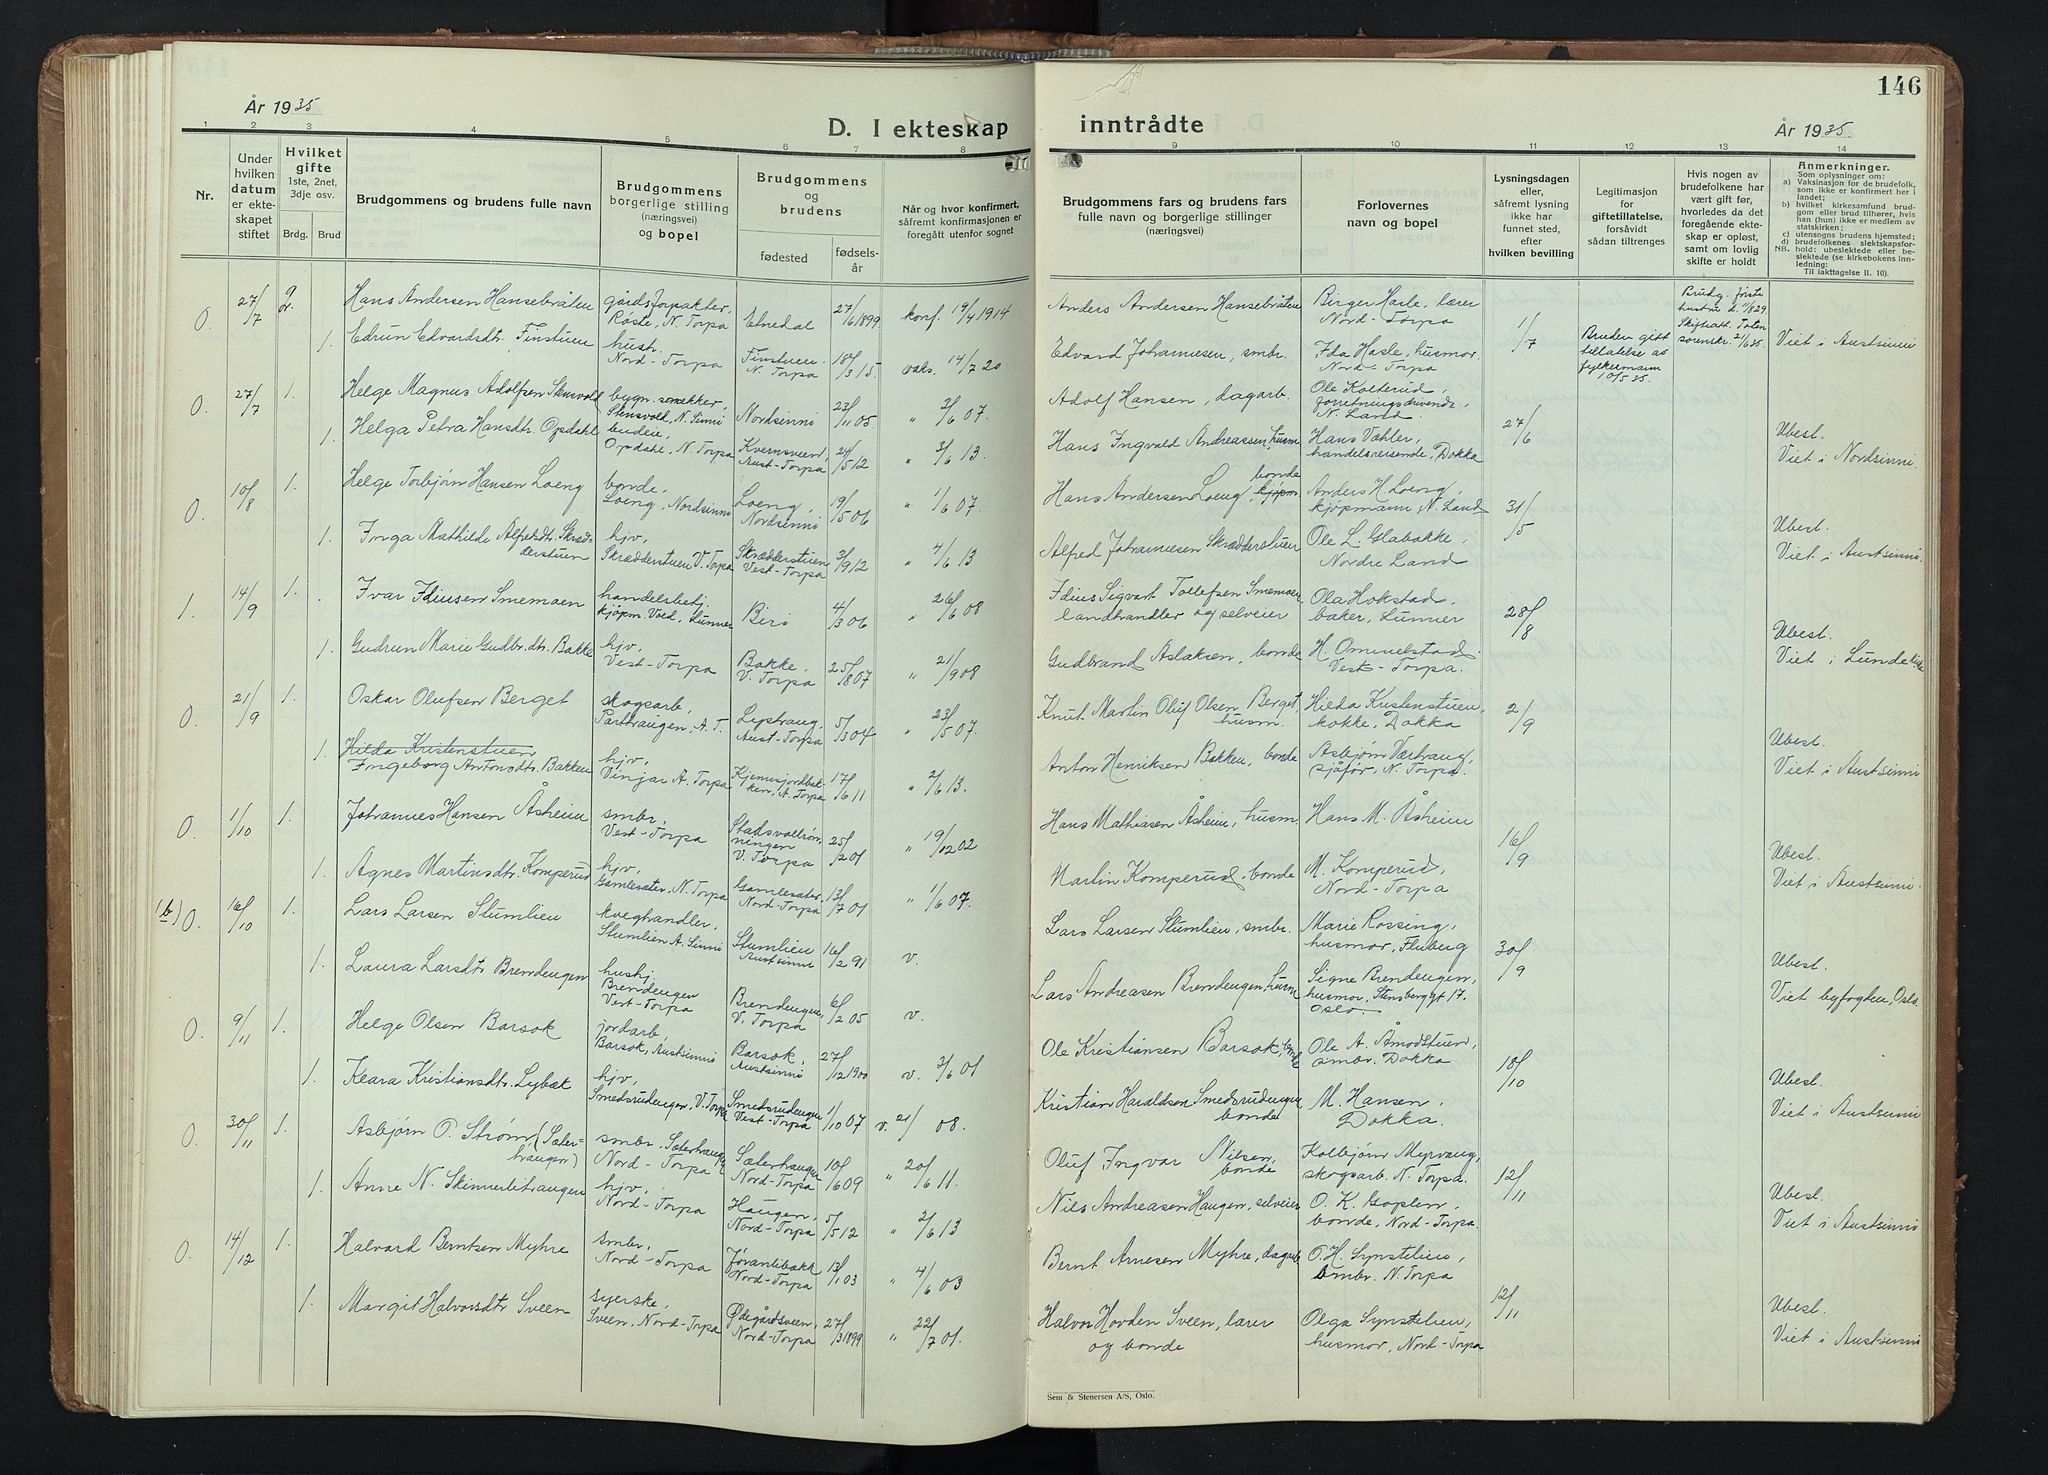 År 1935
D. I ekteskap
1 2 3 4 5 6 7 8
Nr.
Under hvilken datum er ekteskapet stiftet
Hvilket gifte
1ste, 2net, 3dje osv.
Brdg. Brud
Brudgommens og brudens fulle navn
Brudgommens borgerlige stilling (næringsvei) og bopel
Brudgommens og brudens
fødested
fødselsår
Når og hvor konfirmert, såfremt konfirmasjonen er foregått utenfor sognet
0. 27/7 Hans Andersen Hansebråten gårdsforpakter, Røste, N. Torpa Etnedal 27/6 1899 konf. 19/4 1914
1. Edrun Edvardsdtr. Finstuen hustr. Nord-Torpa Finstuen N. Torpa 18/3 15. vaks. 14/7 20
0. 27/7 1. Helge Magnus Adolfsen Stensvold bygn. snekker, Stensvold, N. Sinni Nordsinni 23/11 05 " 3/6 07.
1. Helga Petra Hansdtr. Opdahl budeie, Opdahl, N. Torpa Kvernsveen, Aust-Torpa 24/5 12 " 3/6 13.
0. 10/8 1. Helge Torbjørn Hansen Loeng bonde, Loeng, Nordsinni Loeng, Nordsinni 19/5 06 " 1/6 07.
1. Inga Mathilde Alfredsdt. Skrædderstuen hjv, Skrædderstuen V. Torpa Skrædderstuen Vest-Torpa 3/9 12 " 4/6 13
1. 14/9 1. Ivar Idiusen Smemoen handelsbetj. kjøpm. Vold, Lunner Biri 4/3 06 " 26/6 08
1. Gudrun Marie Gudbr.dtr. Bakke hjv, Vest-Torpa Bakke, V. Torpa 25/8 07 " 21/9 08
0. 21/9 1. Oskar Olufsen Berget skogsarb, Parthaugen, A. T. Lysthaug, Aust-Torpa 5/3 04 " 23/5 07.
1. Hilda Kristenstuen
Ingeborg Antonsdtr. Bakken hjv, Vinjar A. Torpa Kjennsjordbakken, A. Torpa 17/6 11 " 2/6 13.
0. 1/10 1. Johannes Hansen Åsheim smbr, Vest-Torpa Stadsvollrønningen V. Torpa 25/2 01 " 19/12 02
1. Agnes Martinsdtr. Komperud hjv, Gamlesæter, N. Torpa Gamlesæter Nord-Torpa 13/7 01 " 1/6 07.
0. 16/10 1. Lars Larsen Stumlien kveghandler, Stumlien A. Sinni Stumlien Austsinni 16/2 91 v.
1. Laura Larsdtr Brendengen hushj. Brendengen Vest-Torpa Brendengen, V. Torpa 6/2 05 v.
0. 9/11 1. Helge Olsen Barsok jordarb, Barsok, Austsinni Barsok, Austsinni 27/12 1900 v. 3/6 01
1. Klara Kristiansdtr. Lybæk hjv, Smedsrudengen, V. Torpa Smedsrudengen Vest-Torpa 1/10 07 v. 21/ 08.
0. 30/11 1. Asbjørn O. Strøm (Sæterhaugen) smbr, Sæterhaugen Nord-Torpa Sæterhaugen Nord-Torpa 10/6 09 " 20/6 11.
1. Anne N. Skinnerlihaugen hjv, Nord-Torpa Haugen, Nord-Torpa 5/5 12 " 2/6 13
0. 14/12 1. Halvard Berntsen Myhre smbr, Nord-Torpa Jørandlibakk Nord-Torpa 13/1 03 " 4/6 03
1. Margit Halvorsdtr Sveen syerske, Sveen, Nord-Torpa Ødegårdsveen, Nord-Torpa 27/3 1899 " 22/7 01.
146
inntrådte
År 1935.
9 10 11 12 13 14
Brudgommens fars og brudens fars fulle navn og borgerlige stillinger (næringsvei)
Forlovernes navn og bopel
Lysningsdagen eller, såfremt lysning ikke har funnet sted, efter hvilken bevilling
Legitimasjon for giftetillatelse, forsåvidt sådan tiltrenges
Hvis nogen av brudefolkene har vært gift før, hvorledes da det foregående ekteskap er opløst, samt om lovlig skifte er holdt
Anmerkninger.
Som oplysninger om:
a) Vaksinasjon for de brudefolk, som ikke er konfirmert her i landet;
b) hvilket kirkesamfund brudgom eller brud tilhører, hvis han (hun) ikke er medlem av statskirken;
c) utensogns brudens hjemsted;
d) brudefolkenes slektskapsforhold: ubeslektede eller beslektede (se kirkebokens innledning:
NB. Til iakttagelse II. 10).
Anders Andersen Hansebråten Birger Hasle, lærer Nord-Torpa 1/7 Brudg. første hustru d. 11/8 29. Skifteatt. Toten sorenskr. 21/6 35.
Edvard Johannesen, smbr. Ida Hasle, husmor Nord-Torpa Bruden gift tillatelse av fylkesmann 10/5 35. Viet i Austsinni
Adolf Hansen, dagarb. Ole Kolterud, forretningsdrivende, N. Land 27/6 Ubesl.
Hans Ingvald Andreassen, husm Hans Væhler, handelsreisende, Dokka Viet i Nordsinni.
Hans Andersen Loeng, bonde kjøpm. Anders H. Loeng, kjøpmann, N. Land 31/5 Ubesl.
Alfred Johannesen Skrædderstuen Ole L. Glabakke, Nordre Land Viet i Austsinni.
Idius Sigvart Tollefsen Smemoen landhandler og selveier Ola Hokstad, baker, Lunner 28/8 Ubesl.
Gudbrand Aslaksen, bonde H. Ommelstad Vest-Torpa. Viet i Lunde kirke
Knut Martin Oluf Olsen Berget, husm. Hilda Kristenstuen, kokke, Dokka 2/9 Ubesl.
Anton Henriksen Bakken, bonde Asbjørn Værhaug, sjåfør, N. Torpa. Viet i Austsinni
Hans Mathiasen Åsheim, husm. Hans M. Åsheim 16/9 Ubesl.
Martin Komperud, bonde M. Komperud, Nord-Torpa Viet i Austsinni.
Lars Larsen Stumlien, smbr. Marie Rossing, husmor, Fluberg 30/9 Ubesl.
Lars Andreasen Brendengen, husm Signe Brendengen, husmor, Stensberggt 17. Oslo. Viet byfogden, Oslo
Ole Kristiansen Barsok, bonde Ole A. Åmodtstuen, smbr. Dokka 18/10 Ubesl.
Kristian Haraldsen Smedsrudengen bonde M. Hansen, Dokka. Viet i Austsinni
Oluf Ingvar Nilsen, bonde Kolbjørn Myrvang, skogsarb. N. Torpa. 12/11 Ubesl.
Nils Andreasen Haugen, selveier O. K. Koplen, bonde, Nord-Torpa Viet i Austsinni
Bernt Arnesen Myhre, dagarb O. H. Synstelien, smbr. N. Torpa 12/11 Ubesl.
Halvor Hovden Sveen, lærer og bonde Olga Synstelien, husmor, Nord-Torpa Viet i Austsinni
Sem & Stenersen A/S, Oslo.